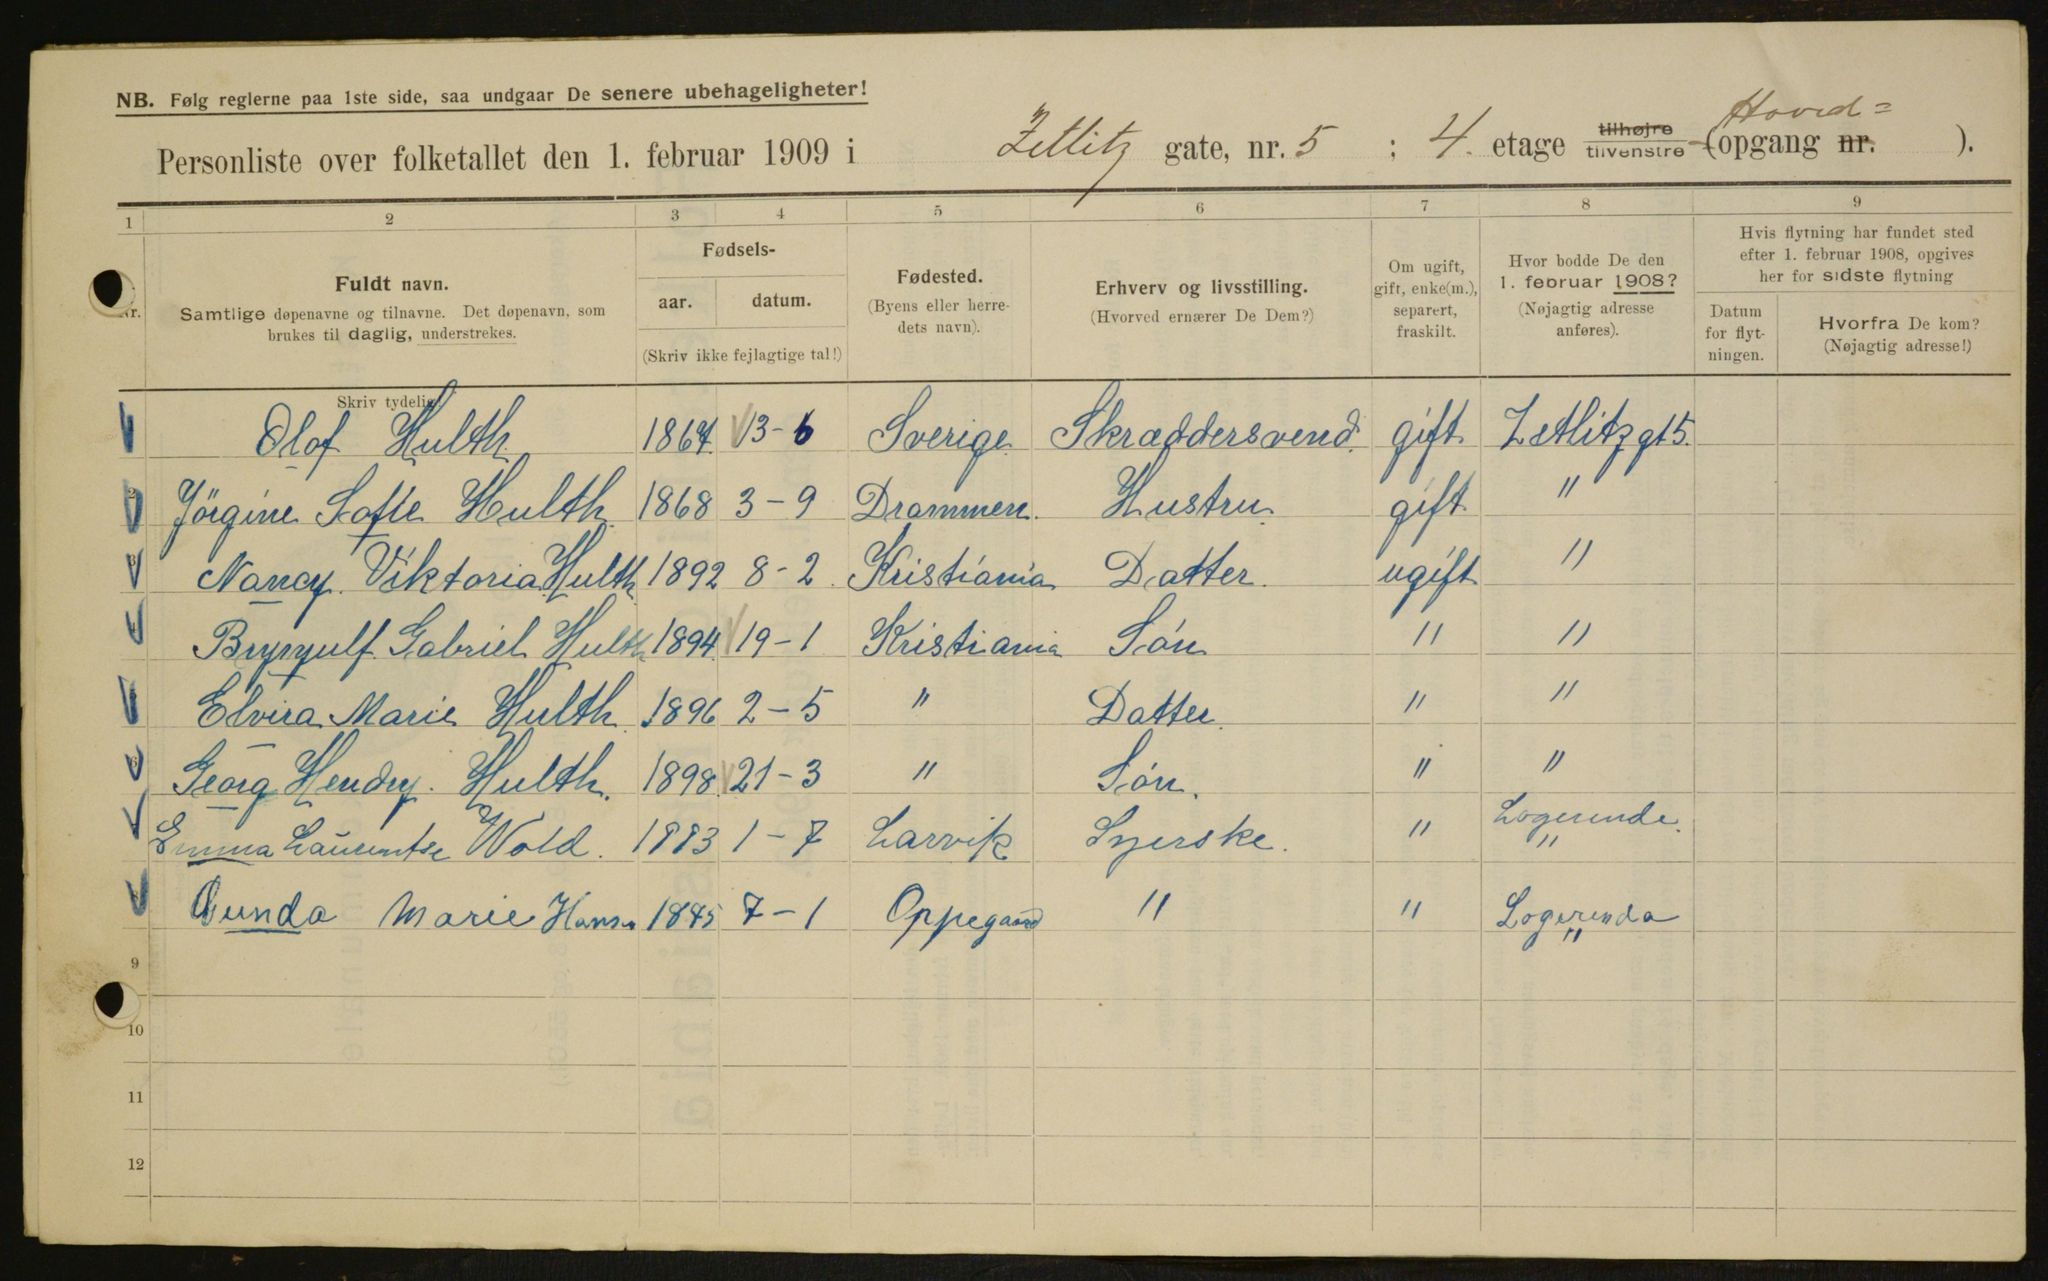 NB. Følg reglerne paa 1ste side, saa undgaar De senere ubehageligheter!
Personliste over folketallet den 1. februar 1909 i Zetlitz gate, nr. 5 ; 4. etage tilhøjre tilvenstre (opgang nr. Hoved= ).
1 2 3 4 5 6 7 8 9
Nr.
Fuldt navn.
Samtlige døpenavne og tilnavne. Det døpenavn, som
brukes til daglig, understrekes.
Skriv tydelig
Fødsels-
aar. datum.
(Skriv ikke fejlagtige tal!)
Fødested.
(Byens eller herre-
dets navn).
Erhverv og livsstilling.
(Hvorved ernærer De Dem?)
Om ugift,
gift, enke(m.),
separert,
fraskilt.
Hvor bodde De den
1. februar 1908?
(Nøjagtig adresse
anføres).
Hvis flytning har fundet sted
efter 1. februar 1908, opgives
her for sidste flytning
Datum
for flyt-
ningen.
Hvorfra De kom?
(Nøjagtig adresse!)
Olof Hulth 1864. 13-6 Sverige Skræddersvend. gift Zetlitz gt 5.
2 Jörgine Sofie Hulth 1868 3-9 Drammen. Hustru gift "
3 Nancy. Viktoria Hulth 1892 8-2 Kristiania Datter. ugift "
4 Brynyulf Gabriel Hulth 1894. 19-1 Kristiania Sön " "
5 Elvira Marie Hulth 1896 2-5 " Datter. " "
6 Georg Hendry. Hulth. 1898. 21-3 " Sön. " "
Emma Laurentse Wold. 1883 1-7 Larvik Syerske. " Logerende. "
8 Gunda Marie Hansen 1885 7-1 Oppegaard " " Logerenda "
9
10
11
12